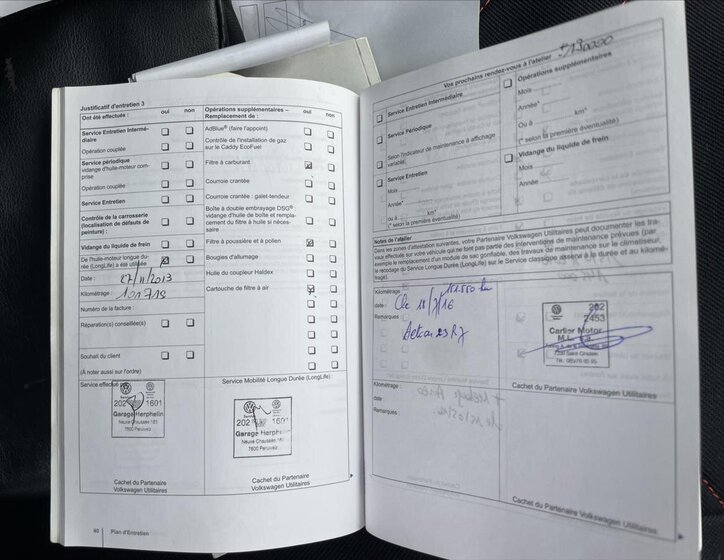 Justificatif d'entretien 3
Ont été effectués : oui non
Service Entretien Intermé-
diaire
Opération couplée
Service périodique
vidange d'huile-moteur com-
prise
Opération couplée
Service Entretien
Contrôle de la carrosserie
(localisation de défauts de
peinture) :
Vidange du liquide de frein
De l'huile-moteur longue du-
rée (LongLife) a été utilisée
Date :
27/11/2013
Kilométrage :
101718
Numéro de la facture :
Réparation(s) conseillée(s)
Souhait du client
(À noter aussi sur l'ordre)
Service effectué par
202 1601
Garage Herphelin
Neuve Chaussée 183
7600 Peruwelz
Cachet du Partenaire
Volkswagen Utilitaires
Opérations supplémentaires –
Remplacement de : oui non
AdBlue® (faire l'appoint)
Contrôle de l'installation de gaz
sur le Caddy EcoFuel
Filtre à carburant
Courroie crantée
Courroie crantée : galet-tendeur
Boîte à double embrayage DSG®
vidange d'huile de boîte et rempla-
cement du filtre à huile si néces-
saire
Filtre à poussière et à pollen
Bougies d'allumage
Huile du coupleur Haldex
Cartouche de filtre à air
Service Mobilité Longue Durée (LongLife) :
202 1601
Garage Herphelin
Neuve Chaussée 183
7600 Peruwelz
Cachet du Partenaire
Volkswagen Utilitaires
40 Plan d'Entretien
Vos prochains rendez-vous à l'atelier
Service Entretien Intermédiaire
Service Périodique
Selon l'indicateur de maintenance à affichage
variable.
Service Entretien
Mois
Année*
ou à km*
(* selon la première éventualité)
Opérations supplémentaires
Mois
Année*
Ou à km*
(* selon la première éventualité)
Vidange du liquide de frein
Mois
Année
Notes de l'atelier
Dans les zones d'attestation suivantes, votre Partenaire Volkswagen Utilitaires peut documenter les tra-
vaux effectués sur votre véhicule qui ne font pas partie des interventions de maintenance prévues (par
exemple le remplacement d'un module de sac gonflable, des travaux de maintenance sur le climatiseur,
le recodage du Service Longue Durée (LongLife) sur le Service classique assero à la durée et au kilomé-
trage).
Kilométrage
151.550 km
date :
Le 18/7/16
Remarques :
Action 23 R7
202
2453
Carlier Motor
7330 Saint-Ghislain
Cachet du Partenaire Volkswagen Utilitaires
Kilométrage :
date
Remarques :
Cachet du Partenaire Volkswagen Utilitaires